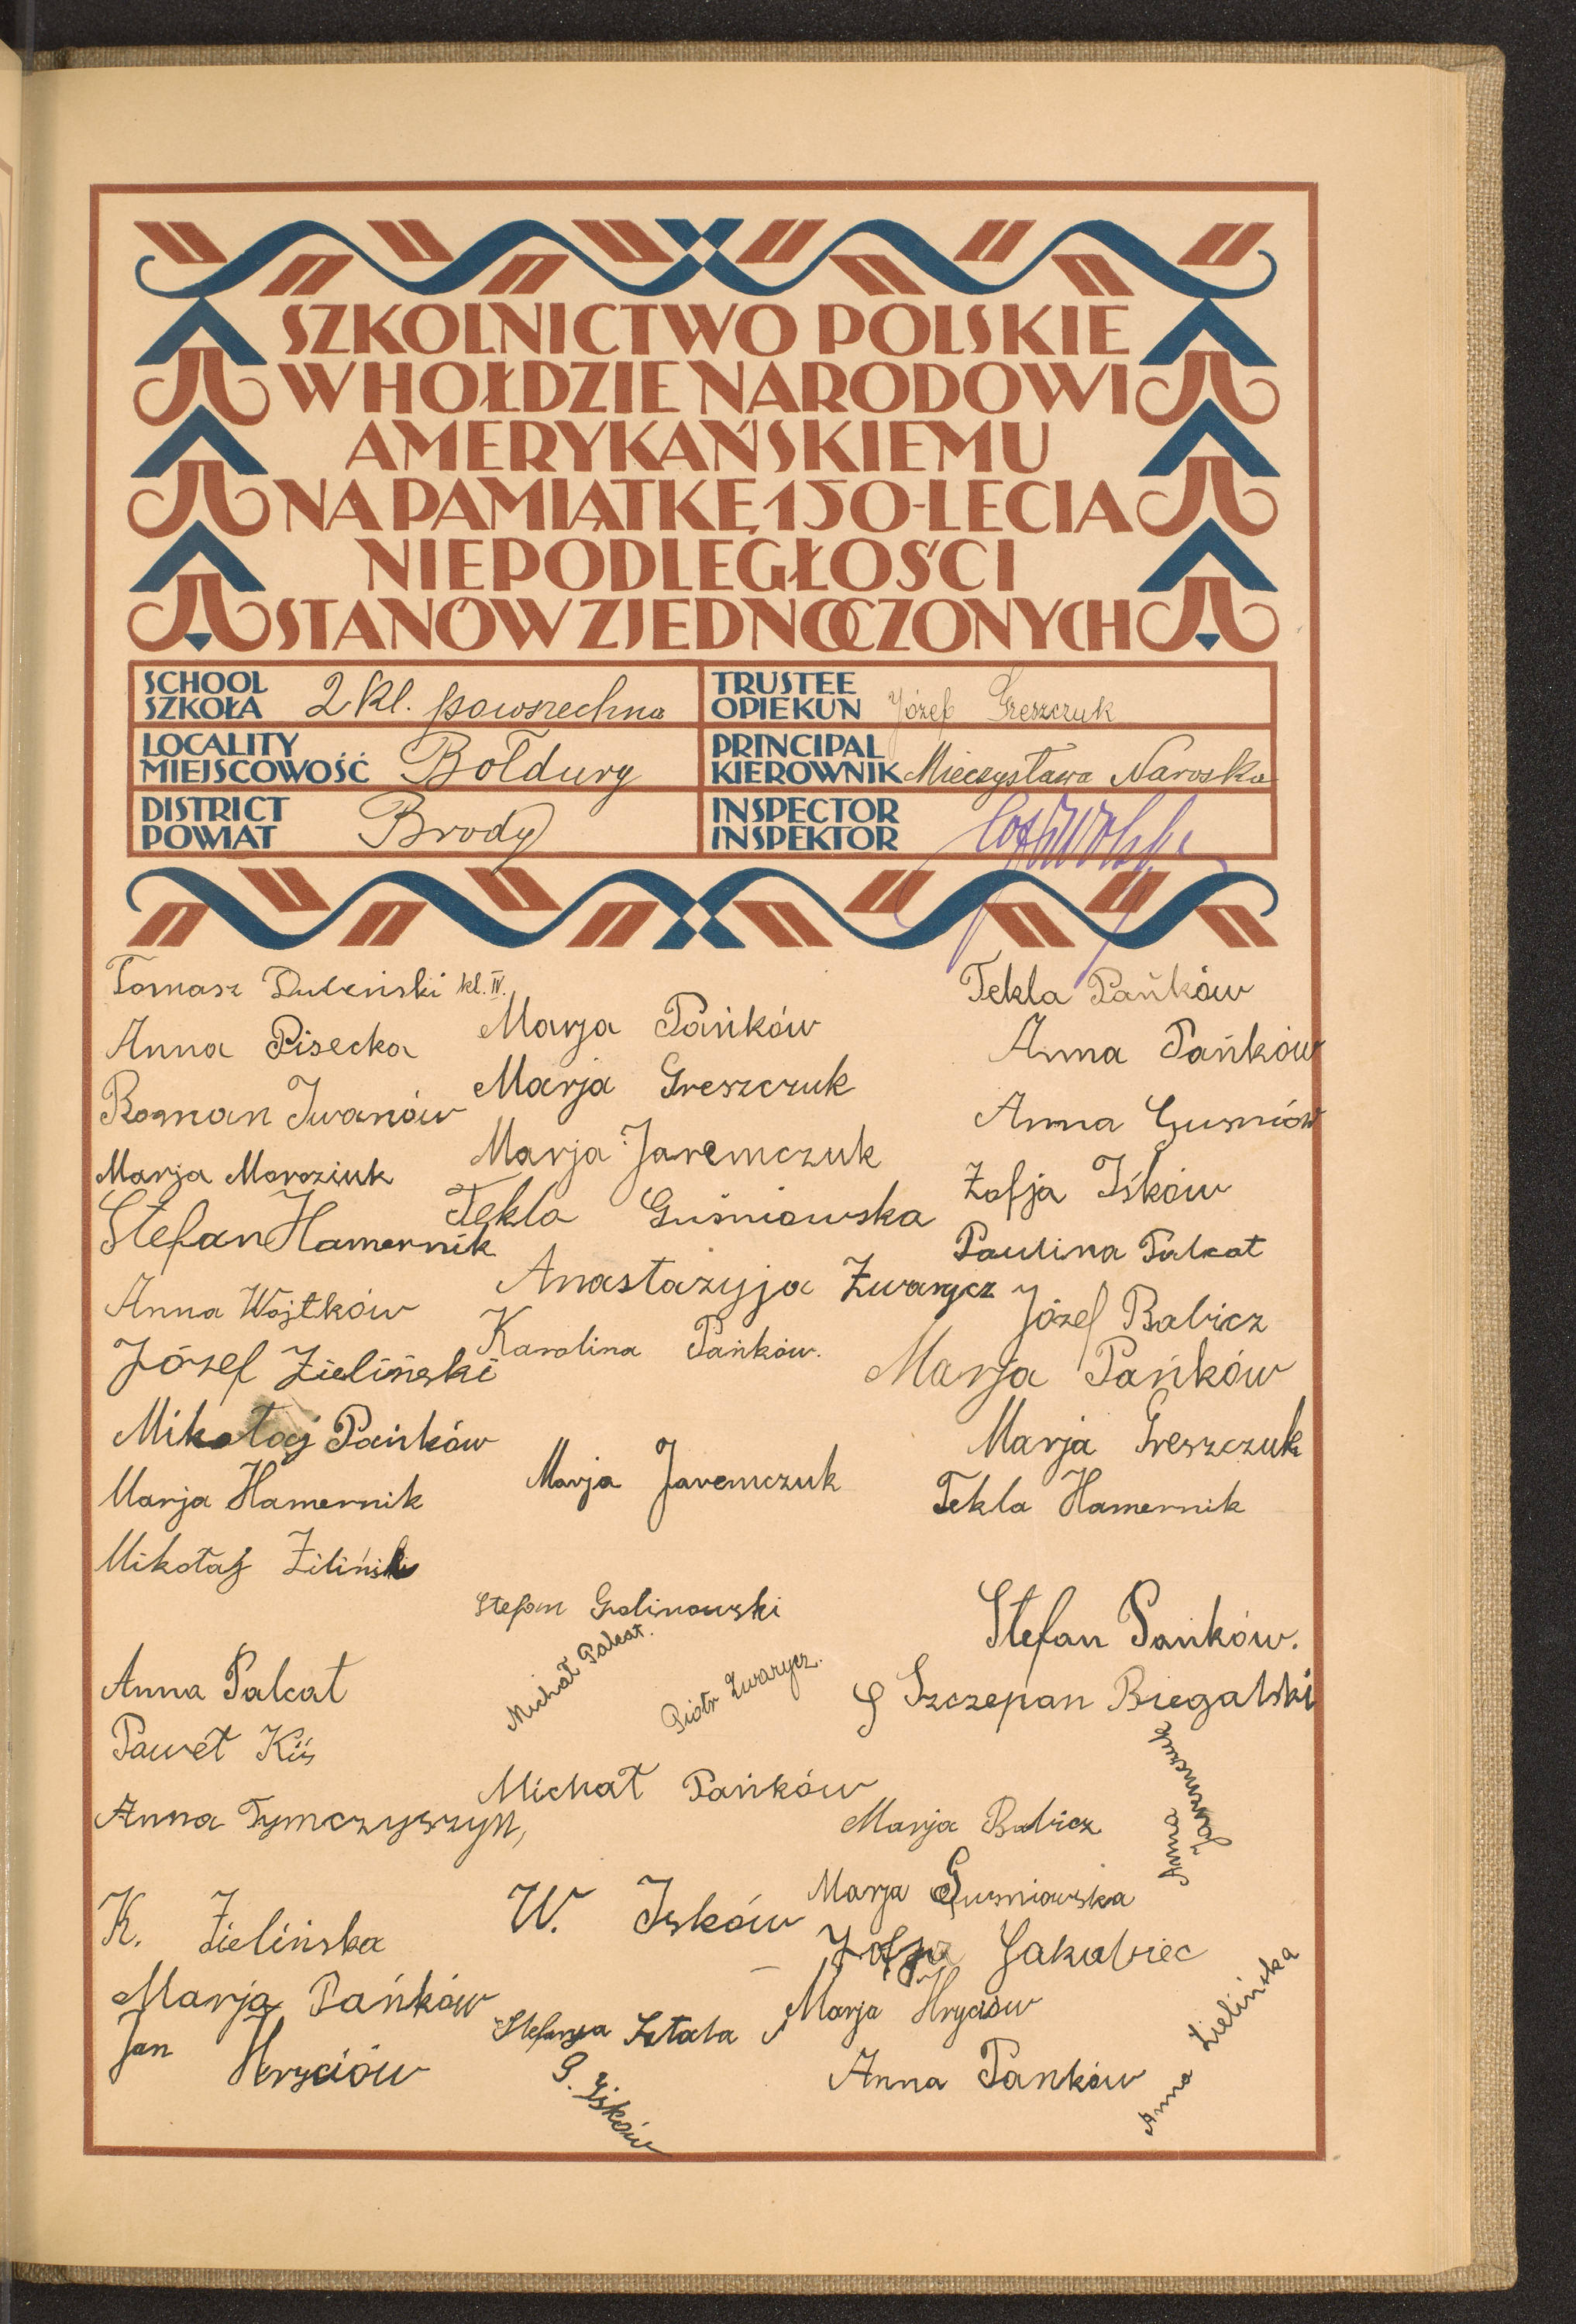 SZKOLNICTWO POLSKIE
W HOŁDZIE NARODOWI
AMERYKAŃSKIEMU
NA PAMIĄTKĘ 150-LECIA
NIEPODLEGŁOŚCI
STANÓW ZJEDNOCZONYCH
SCHOOL
SZKOŁA 2 kl. powszechna
TRUSTEE
OPIEKUN Józef Greszczuk
LOCALITY
MIEJSCOWOŚĆ Bołdury
PRINCIPAL
KIEROWNIK Mieczysława Naroska
DISTRICT
POWIAT Brody
INSPECTOR
INSPEKTOR
Tomasz kl. IV.
Anna Pisecka
Roman Iwanów
Marja Moroziuk
Stefan Hamernik
Anna Wojtków
Józef Zieliński
Mikołaj Pańków
Marja Hamernik
Mikołaj Ziliński
Anna Palcat
Paweł Kiś
Anna Tymczyszyn,
K. Zielińska
Marja Pańków
Jan Hryciów
Marja Pańków
Marja Greszczuk
Marja Jaremczuk
Tekla Guśniowska
Anastazyja Zwarycz
Karolina Pańków.
Marja Jaremczuk
Stefan Galinowski
Michał Palcat.
Piotr Zwarycz.
Michał Pańków
W. Iśków
Stefanja
G. Iśków
Tekla Pańków
Anna Pańków
Anna Guśniów
Zofja Iśków
Paulina Palcat
Józef Babicz
Marja Pańków
Marja Greszczuk
Tekla Hamernik
Stefan Pańków.
Szczepan Biegalski
Anna Jaremczuk
Marja Babicz
Marja Guśniowska
Zofja Jakubiec
Marja Hryciów
Anna Pańków
Anna Zielińska